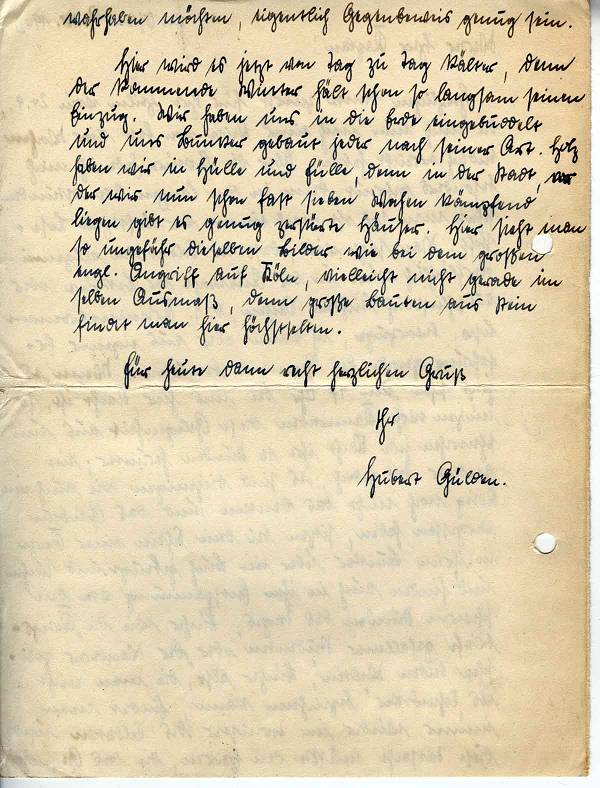 wahrhaben möchten, eigentlich Gegenbeweis genug sein.
Hier wird es jetzt von Tag zu Tag kälter, denn
der kommende Winter hält schon so langsam seinen
Einzug. Wir haben uns in die Erde eingebuddelt
und uns Bunker gebaut jeder nach seiner Art. Holz
haben wir in Hülle und Fülle, denn in der Stadt, vor
der wir nun schon fast sieben Wochen kämpfend
liegen gibt es genug zerstörte Häuser. Hier sieht man
so ungefähr dieselben Bilder wie bei dem großen
engl. Angriff auf Köln, vielleicht nicht gerade im
selben Ausmaß, denn große Bauten aus Stein
findet man hier höchstselten.
Für heute dann recht herzlichen Gruß
Ihr
Hubert Gülden.